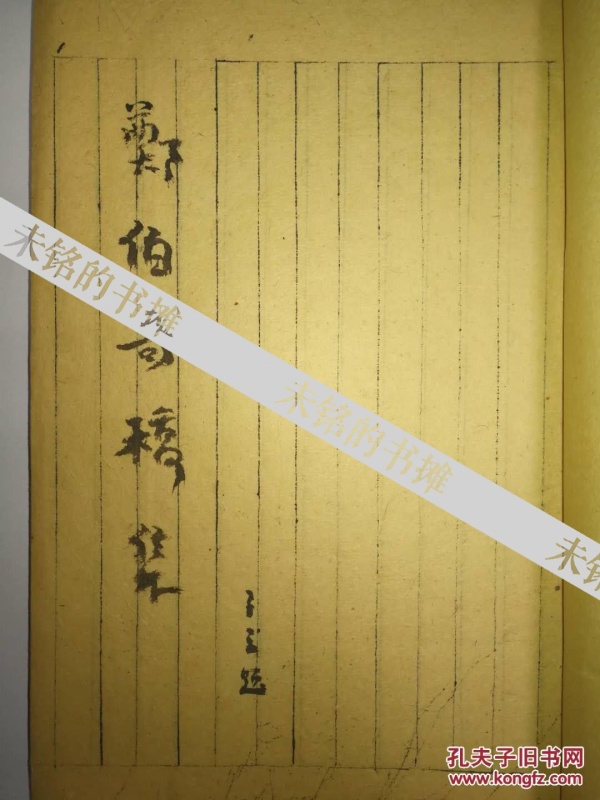 鄭伯奇稿集
题
未铭的书摊
未铭的书摊
未铭的书摊
孔夫子旧书网
www.kongfz.com